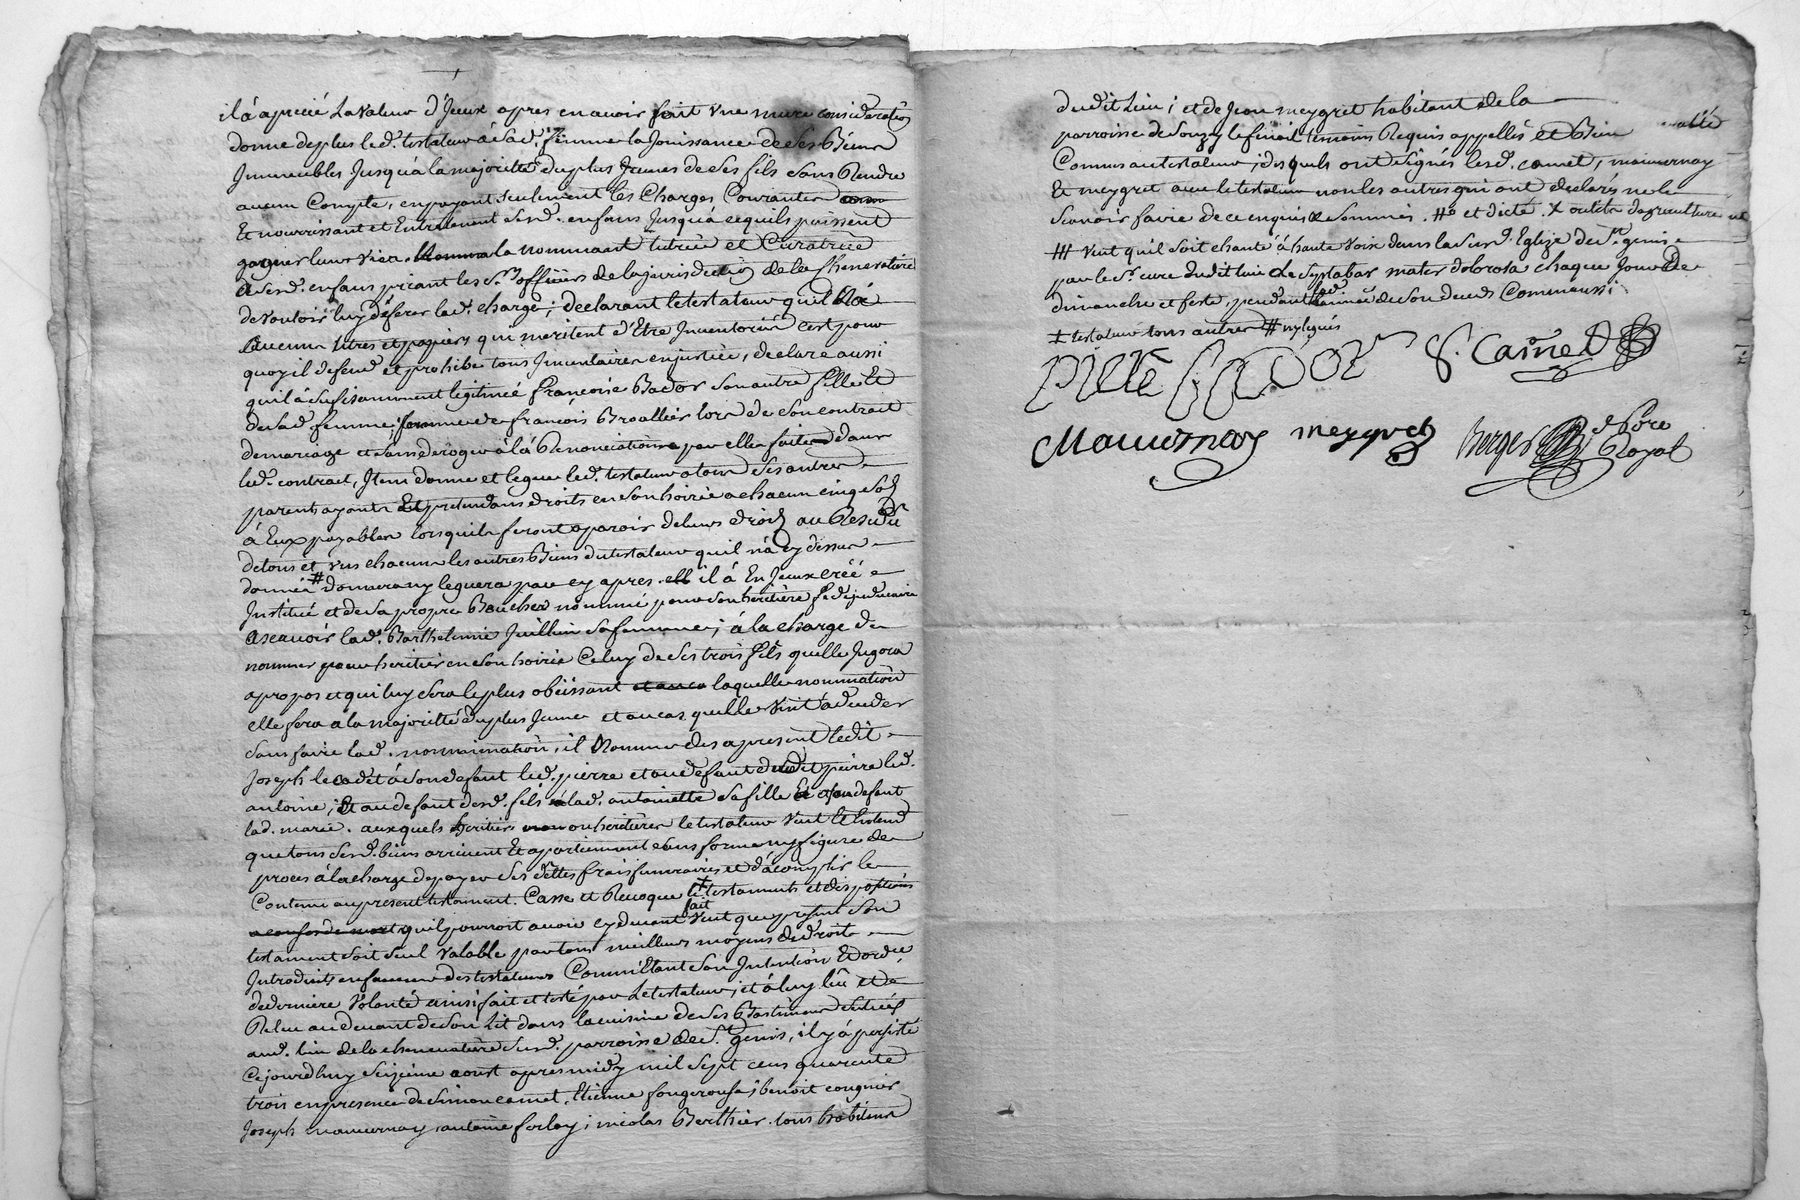 il à aprecié La valeur d'Jceux apres en avoir fait vne mure consideration
donne deplus led. testateur à sad. femme la Jouissance de ses Biens
Immeubles Jusqu'à la majoritté du plus Jeune de ses fils sans Rendre
aucun Compte, en payant seulement les Charges Courantes
Et nourrissant et Entretenant sesd. enfans Jusqu'a cequils puissent
gagner leur vie la nommant tutrice et Curatrice
a sesd. enfans priant les Srs officiers de la jurisdiction de la Chenevatiere
de vouloir luy deferer lad. charge; declarant le testateur quil n'a
aucuns titres et papiers qui meritent d'Etre Inventoriés c'est pour
quoy il defend et prohibe tous Jnventaires en justice, declare aussi
quil à sufisamment legitimée françoise Bador son autre fille Et
de sad. femme; femme de françois Broallier lors de son contrat
de mariage et sans deroger à la Renonciation par elle faite dans
led. contract, Jtem donne et legue led. testateur a tous ses autres
parents ayants Et pretendans droits en son hoirie a chacun cinq sols
à Eux payables lorsquils feront aparoir de leurs droits au Residu
de tous et vns chacuns les autres Biens du testateur quil n'a cy dessus
donnés # donnera ny leguera par cy apres il à En Jceux créé
Institué et de sa propre Bouche nommé pour son heritiere fideiduciaire
ascavoir lad. Barthelemie Juillien sa femme; à la charge de
nommer pour heritier en son hoirie Celuy de ses trois fils quelle Jugera
apropos et qui luy sera le plus obëissant et aucas laquelle nomination
elle fera a la majoritté du plus Jeune et au cas quelle vint a deceder
sans faire lad. nommination, il Nomme des apresent ledit
Joseph le cadet à son defaut led. pierre et au defaut dudit pierre led.
antoine; Et au defaut desd. fils à lad. antoinette sa fille Et a son defaut
lad. marie. auxquels heritiers ou heritieres le testateur veut Et Entend
que tous sesd. biens arrivent Et apartiennent sans forme ny figure de
proces à la charge de payer ses dettes frais funeraires et d'acomplir le
Contenu au present testament. Casse et Revoque ts testaments et dispositions
quil pourroit avoir fait cy devant veut que present son
testament soit seul valable par tous meilleurs moyens de droits
Introduits en faveur des testateurs Commëttant son Intention Et ordre
de derniere volonté ainsi fait et testé par le testateur; et à luy lû et
Relu au devant de son Lit dans la cuisine de ses Bastiments scitués
aud. lieu de la chenevatiere susd. parroisse de St. genis, il y à persisté
Cejourdhuy seizieme aoust apres midy mil sept cens quarante
trois en presence de Simon camet, Etienne fougerouse; benoit cougnier
Joseph mauvernay, antoine forlay; nicolas Berthier tous habitans
dudit Lieu; et de Jean meygret habitant de la
parroisse de Souzy Temoins Requis appellés et Bien
Connus au testateur; desquels ont signés lesd. camet, mauvernay
Et meygret avec le testateur non les autres qui ont declarés ne le
scavoir faire de ce enquis & sommés. Et dicté. X outils d'agriculture
# veut qu'il soit chanté à haute voix dans la susd. Eglize de St. genis
par le Sr. curé dudit lieu Le stabat mater dolorosa chaque Jour de
dimanche et feste, pendant lad. année de son deceds Comme aussi
‡ testateur tous autres # ny legués
PiERE BADOR S. Camet
Mauvernay meygret Berger Nore Royal